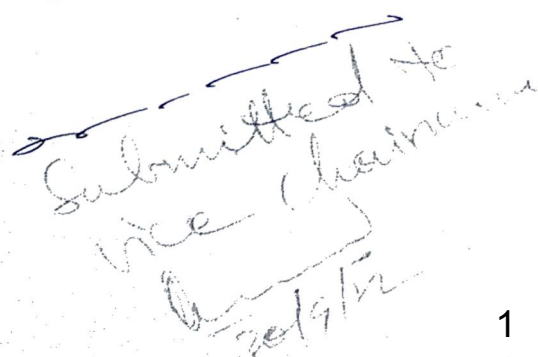 Submitted to
vice Chairman
20/9/12
1